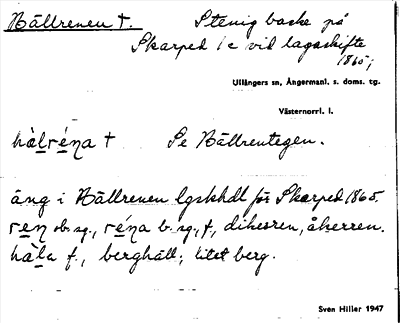 Hällrenen †. Stenig backe på
Skarped 1c vid lagaskifte
1865;
Ullångers sn, Ångermanl. s. doms. tg.
Västernorrl. l.
hàlréna † Se Hällrentegen.
äng i Hällrenen lgskhdl för Skarped 1865.
ren ob. sg., réna b. sg., f., dikesren, åkerren.
häla f., berghäll; litet berg.
Sven Hiller 1947